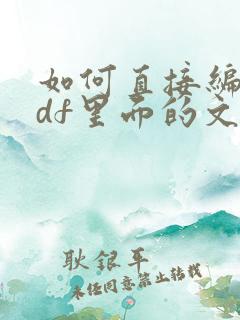 如何直接编
df里面的文
耿银平
未经同意禁止转载